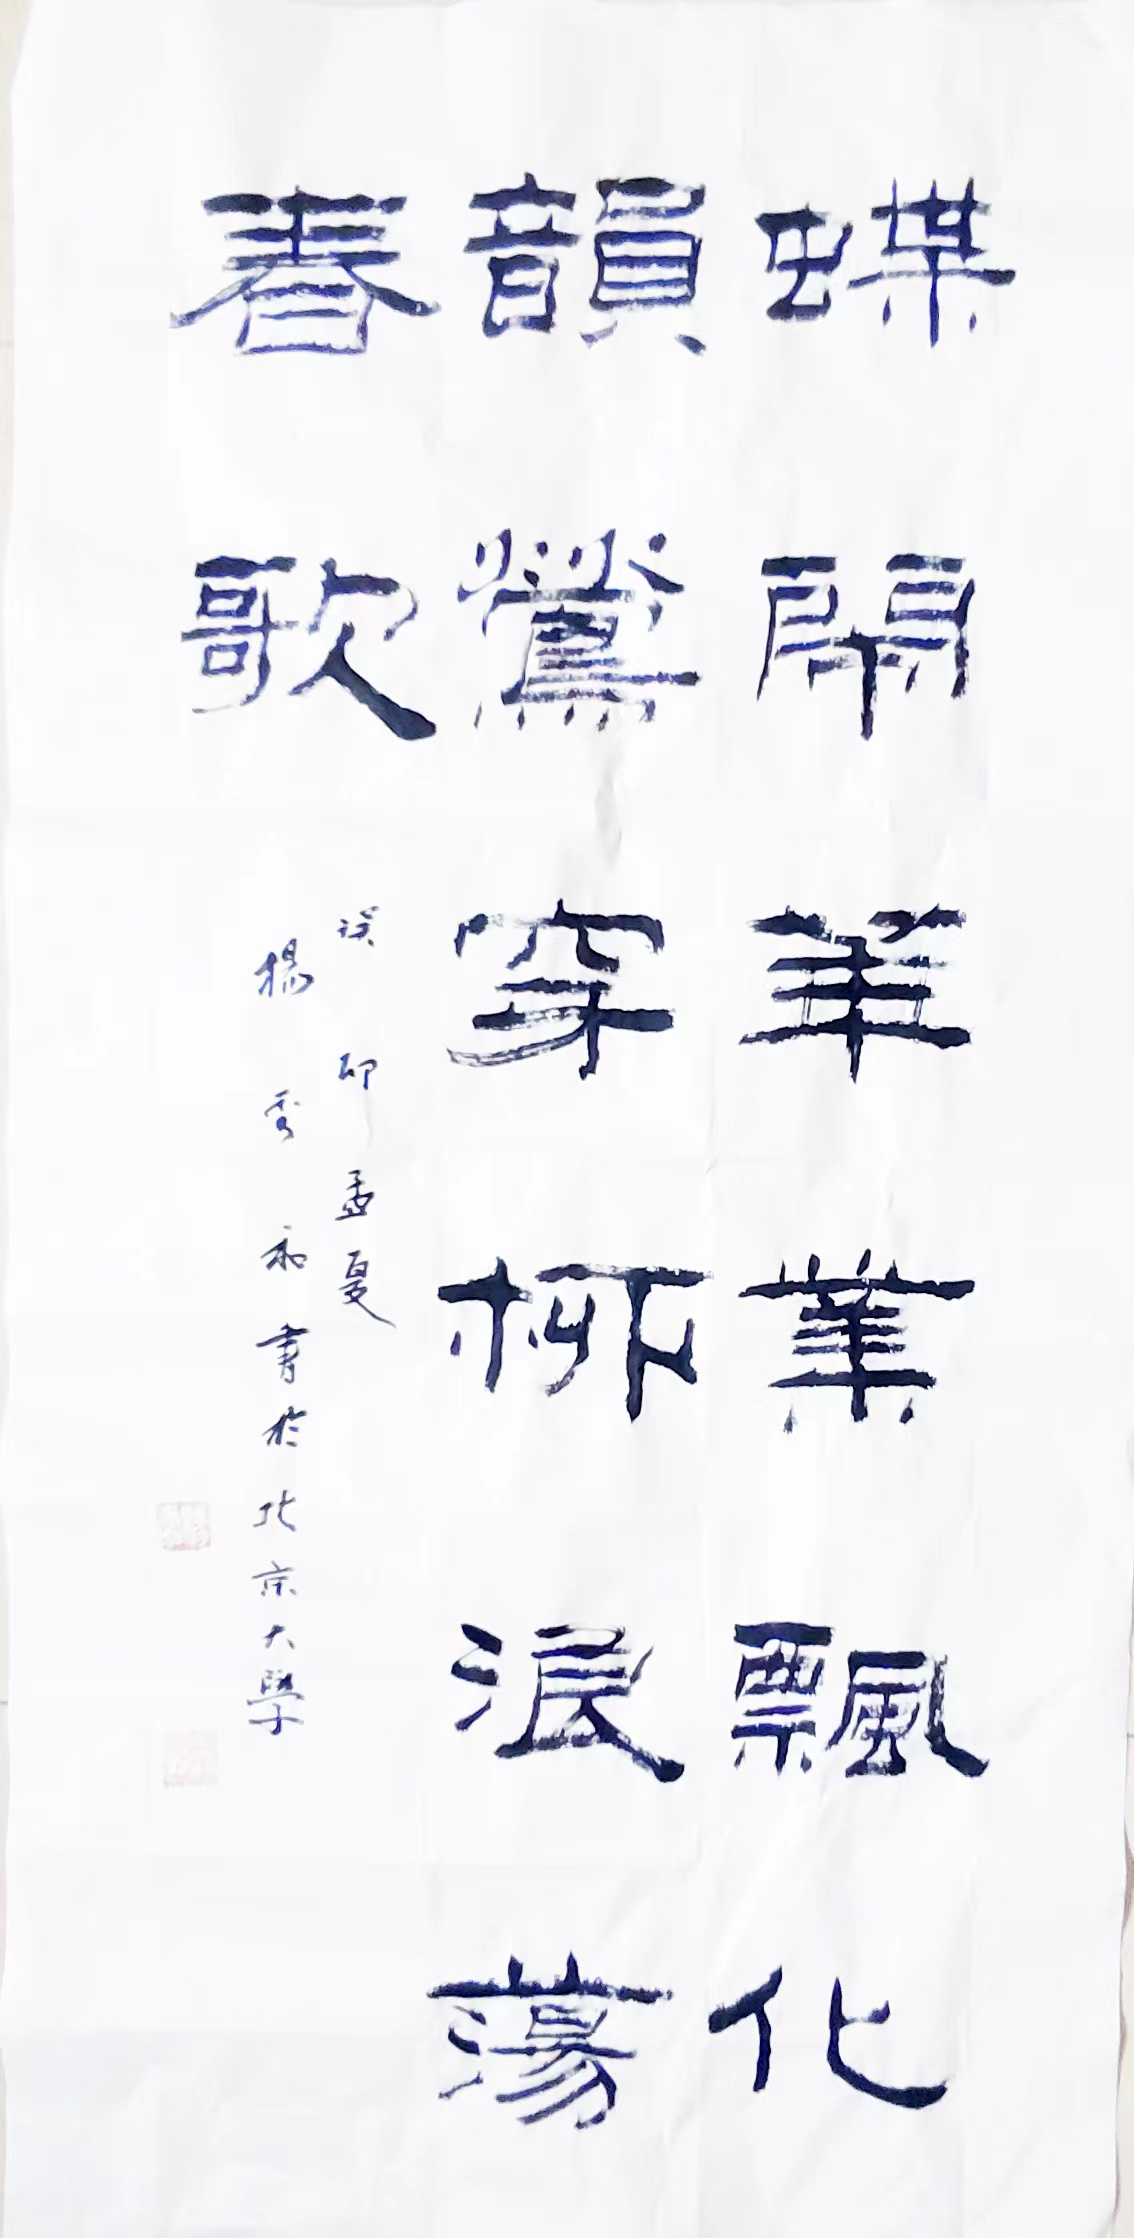 蝶華業飄化
韻鶯穿柳浪蕩
春歌
癸卯孟夏
楊秀和書於北京大學